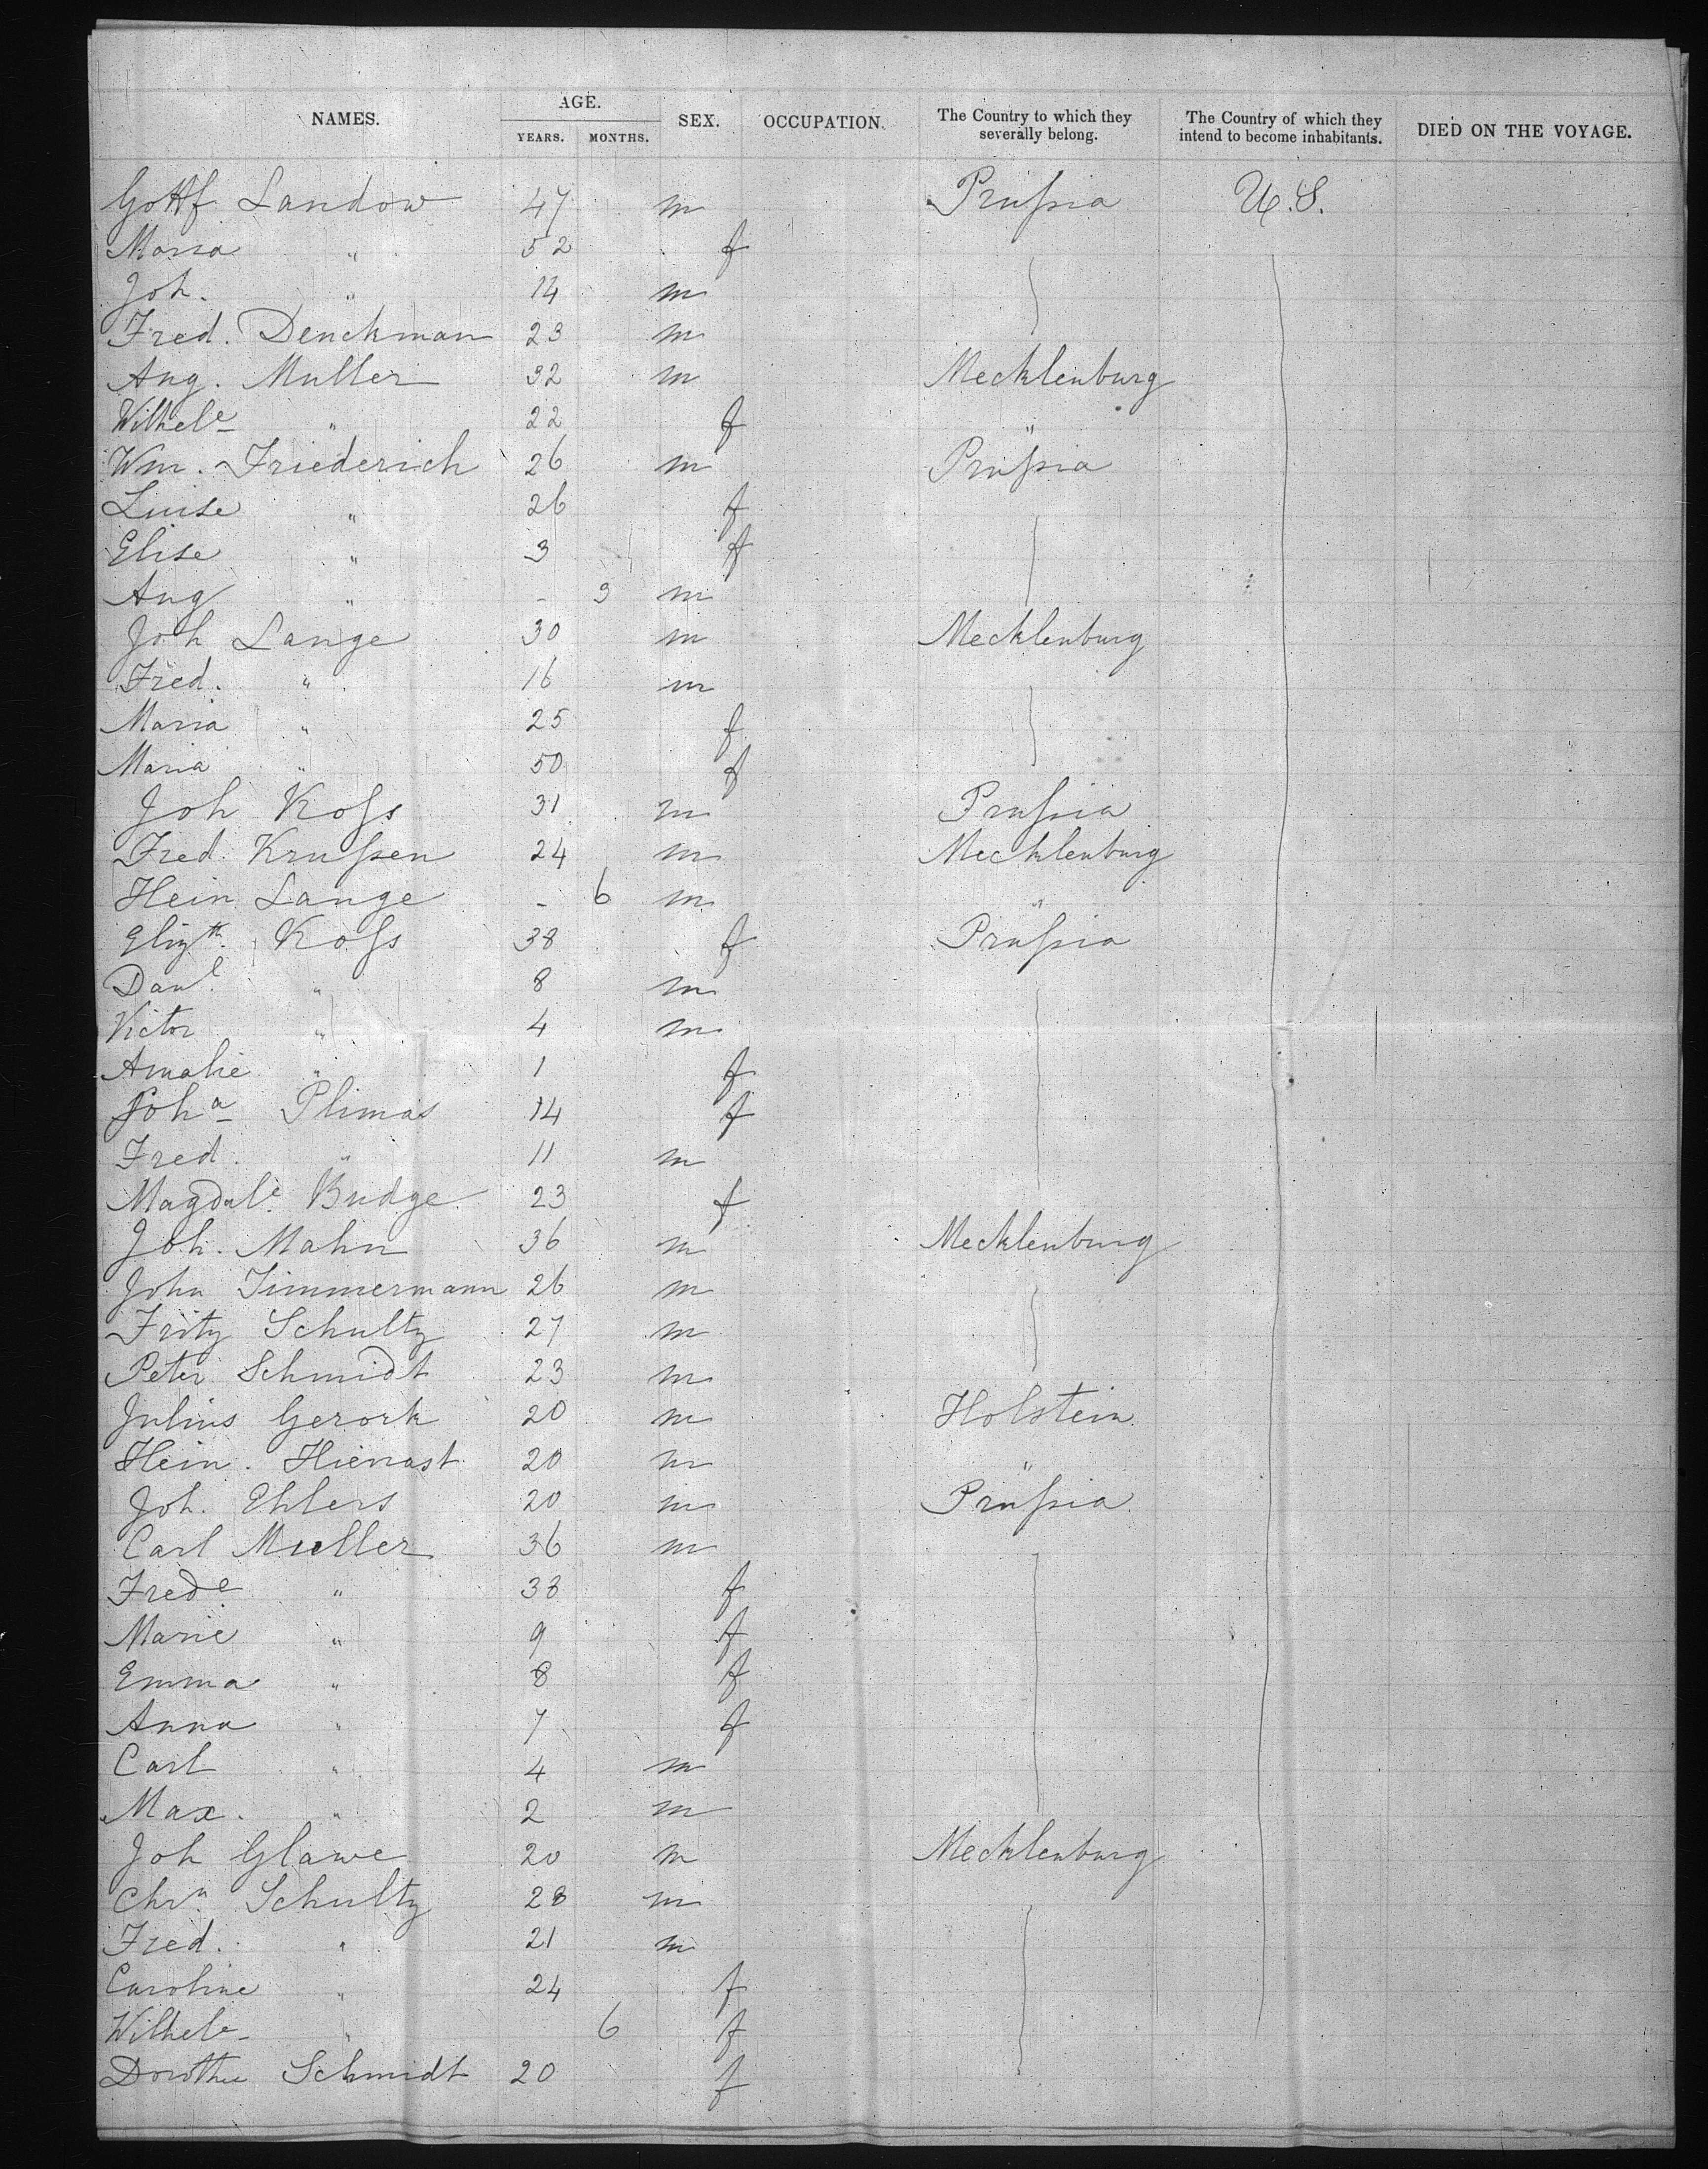 NAMES. AGE. YEARS. MONTHS. SEX. OCCUPATION. The Country to which they severally belong. The Country of which they intend to become inhabitants. DIED ON THE VOYAGE.
Gottf Landow 47 m Prussia U.S.
Maria " 52 f
Joh. " 14 m
Fred. Denckman 23 m
Aug. Muller 32 m Mecklenburg
Wilhel<sup>e</sup> " 22 f "
Wm. Friederich 26 m Prussia
Luise " 26 f
Elise " 3 f
Aug " - 3 m
Joh Lange 30 m Mecklenburg
Fred. " 16 m
Maria " 25 f
Maria " 50 f
Joh Koss 31 m Prussia
Fred. Krussen 24 m Mecklenburg
Hein Lange - 6 m "
Eliz<sup>th</sup>. Koss 38 f Prussia
Dan<sup>l</sup>. " 8 m
Victor " 4 m
Amalie " 1 f
Joh<sup>a</sup> Plimas 14 f
Fred. " 11 m
Magdal<sup>e</sup>. Budge 23 f
Joh. Mahn 36 m Mecklenburg
John Timmermann 26 m
Fritz Schultz 27 m
Peter Schmidt 23 m
Julius Gerork 20 m Holstein
Hein. Hienast 20 m "
Joh. Ehlers 20 m Prussia
Carl Mueller 36 m
Fred<sup>e</sup>. " 38 f
Marie " 9 f
Emma " 8 f
Anna " 7 f
Carl " 4 m
Max. " 2 m
Joh Glawe 20 m Mecklenburg
Chr<sup>n</sup>. Schultz 28 m
Fred. " 21 m
Caroline " 24 f
Wilhel<sup>e</sup> " 6 f
Dorothee Schmidt 20 f